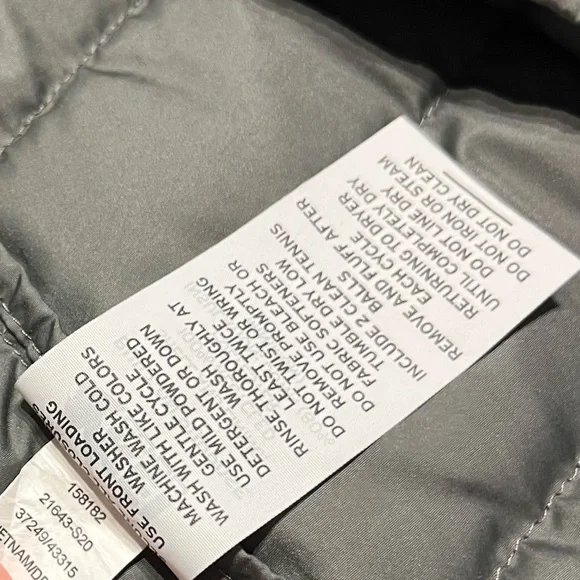 CLOSURES
USE FRONT LOADING
WASHER
MACHINE WASH COLD
WASH WITH LIKE COLORS
GENTLE CYCLE
USE MILD POWDERED
DETERGENT OR DOWN
WASH
RINSE THOROUGHLY AT
LEAST TWICE
DO NOT TWIST OR WRING
REMOVE PROMPTLY
DO NOT USE BLEACH OR
FABRIC SOFTENERS
TUMBLE DRY LOW
INCLUDE 2 CLEAN TENNIS
BALLS
REMOVE AND FLUFF AFTER
EACH CYCLE
RETURNING TO DRYER
UNTIL COMPLETELY DRY
DO NOT LINE DRY
DO NOT IRON OR STEAM
DO NOT DRY CLEAN
158182
21643-S20
37249/43315